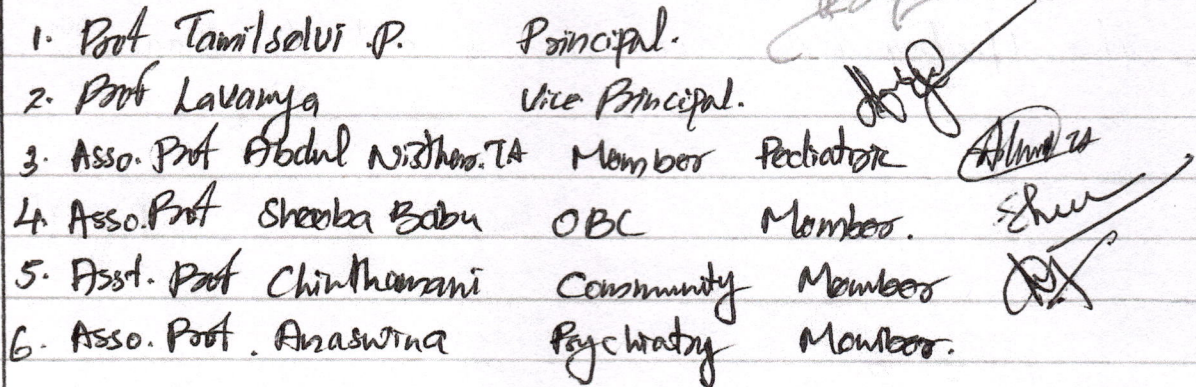 1. Prof Tamilselvi .P. Principal.
2. Prof Lavanya Vice Principal.
3. Asso. Prof Abdul Nisthar. TA Member Pediatric
4. Asso. Prof Sheeba Babu OBC Member.
5. Asst. Prof Chinthamani Community Member
6. Asso. Prof. Anaswina Psychiatry Member.